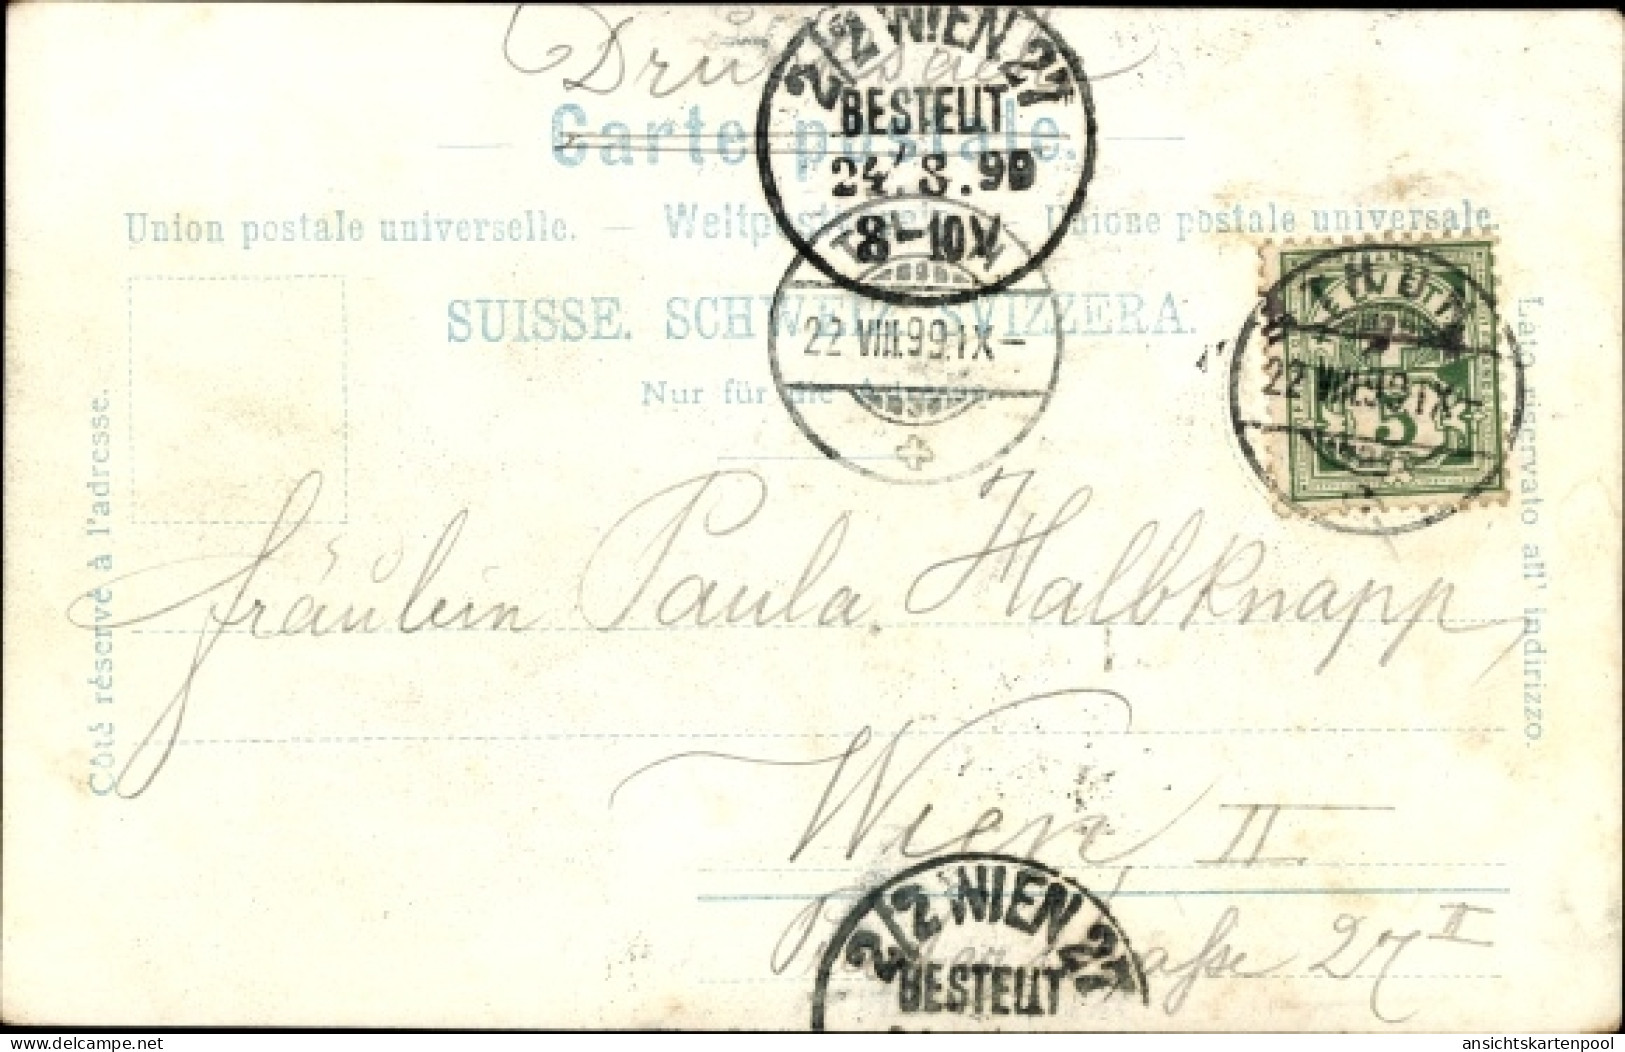 Drucksache
2/2 WIEN 27
BESTELLT
24.8.99
8-10V
Carte postale.
Union postale universelle. — Weltpostverein — Unione postale universale.
SUISSE. SCHWEIZ. SVIZZERA.
Nur für die Adresse.
22 VIII.99.IX-
22 VIII.99.IX-
5
Côté réservé à l'adresse.
Lato riservato all' indirizzo.
Fräulein Paula Halbknapp,
Wien II
straße 27 II
2/2 WIEN 27
BESTELLT
delcampe.net
ansichtskartenpool